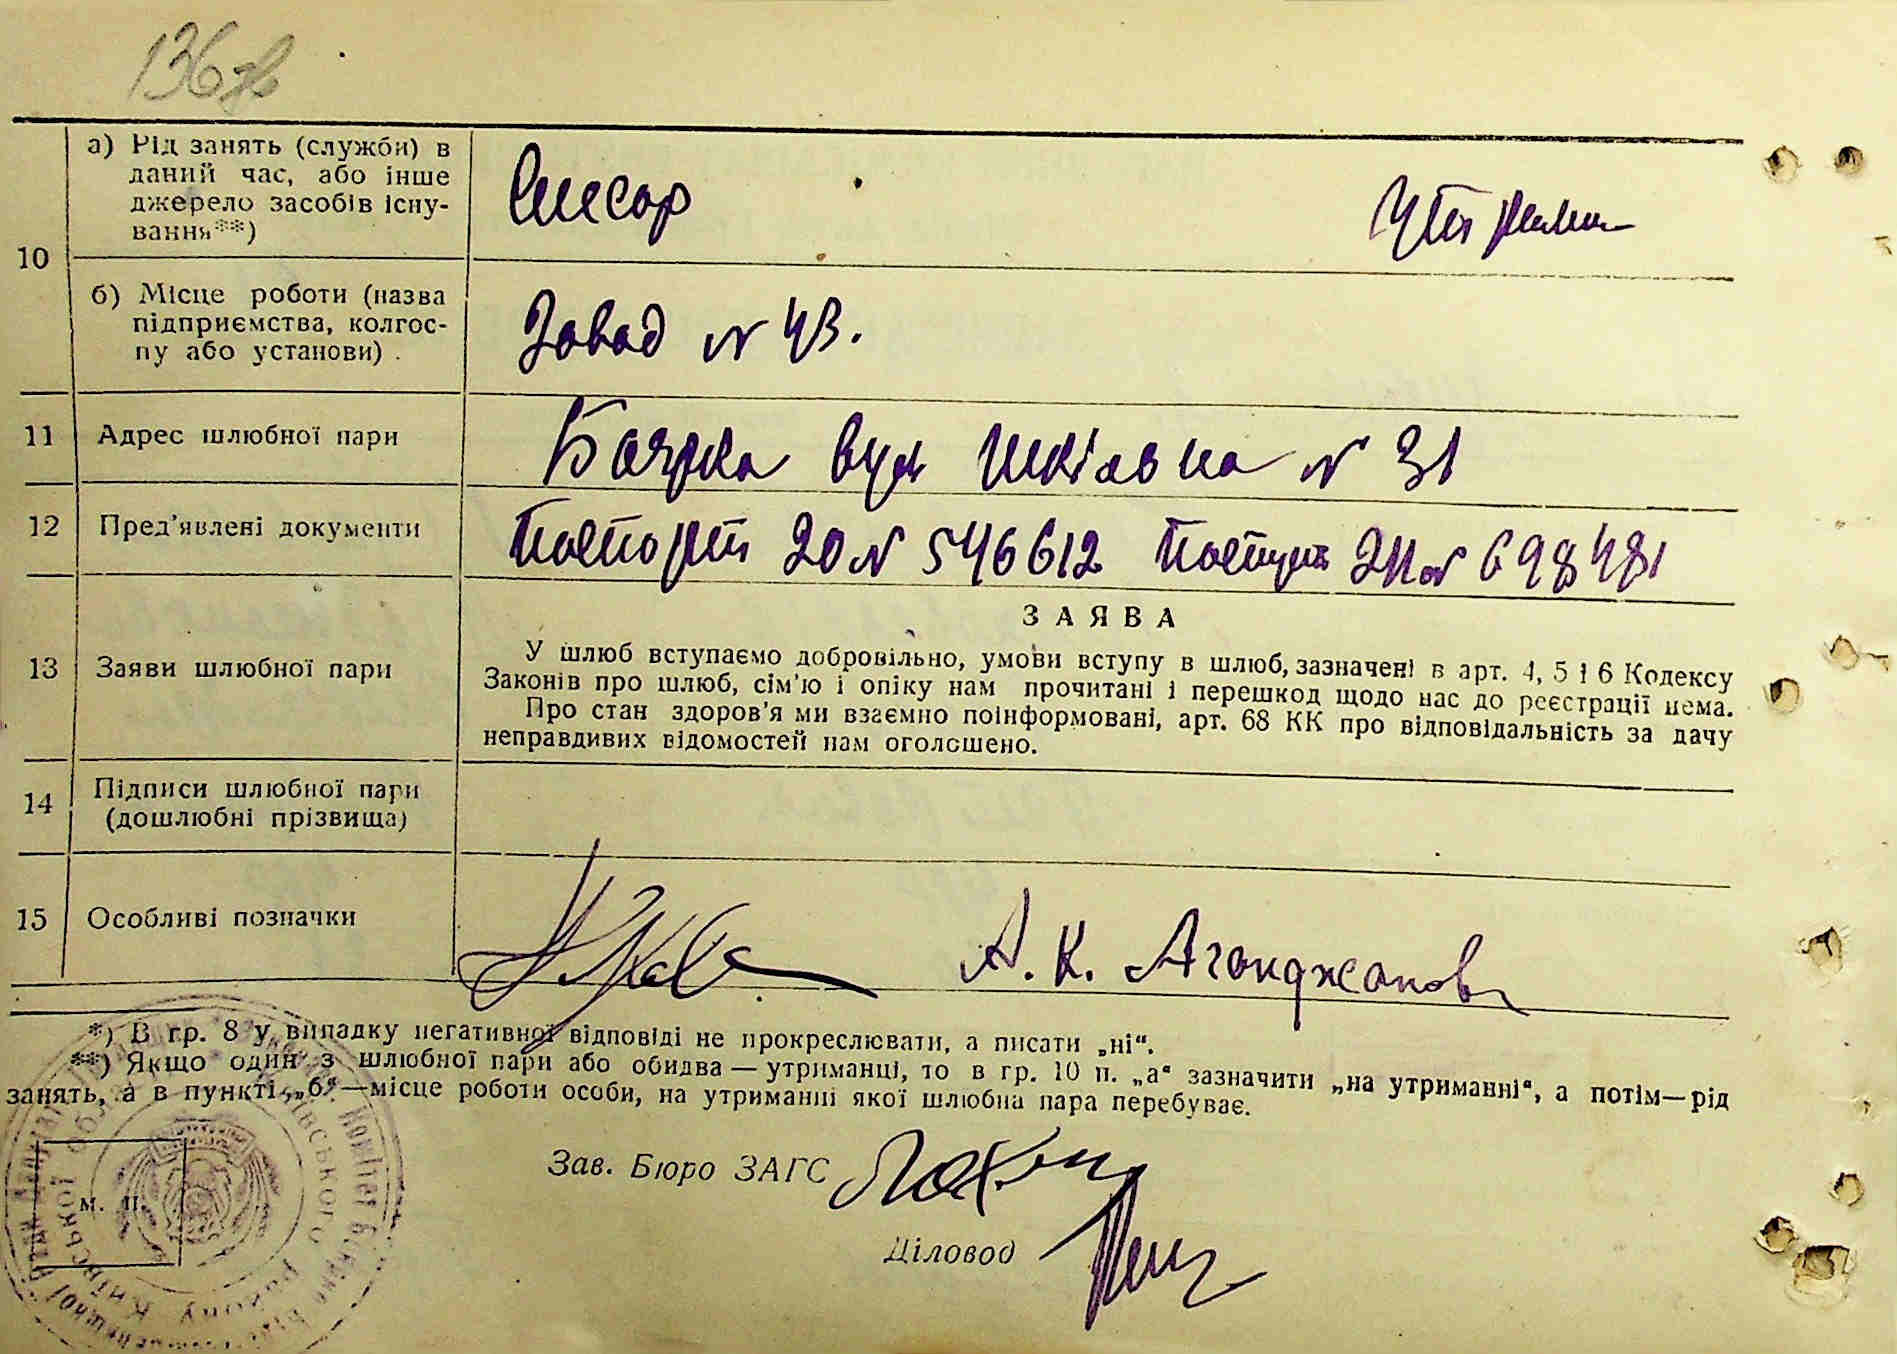 136зв
а) Рід занять (служби) в
даний час, або інше
джерело засобів існу-
вання**)
Слюсар
Утриман
10
б) Місце роботи (назва
підприємства, колгос-
пу або установи) .
Завод N 43.
11 Адрес шлюбної пари
Боярка вул Шкільна N 31
12 Пред'явлені документи
Паспорт 20 N 546612 Паспорт 211 N 698481
13 Заяви шлюбної пари
ЗАЯВА
У шлюб вступаємо добровільно, умови вступу в шлюб, зазначені в арт. 4, 5 і 6 Кодексу
Законів про шлюб, сім'ю і опіку нам прочитані і перешкод щодо нас до реєстрації нема.
Про стан здоров'я ми взаємно поінформовані, арт. 68 КК про відповідальність за дачу
неправдивих відомостей нам оголошено.
14 Підписи шлюбної пари
(дошлюбні прізвища)
15 Особливі позначки
А. К. Аганджанова
*) В гр. 8 у випадку негативної відповіді не прокреслювати, а писати „ні“.
**) Якщо один з шлюбної пари або обидва — утриманці, то в гр. 10 п. „а“ зазначити „на утриманні“, а потім—рід
занять, а в пункті „б“—місце роботи особи, на утриманні якої шлюбна пара перебуває.
Зав. Бюро ЗАГС
м. п.
Діловод
Київського району Київської